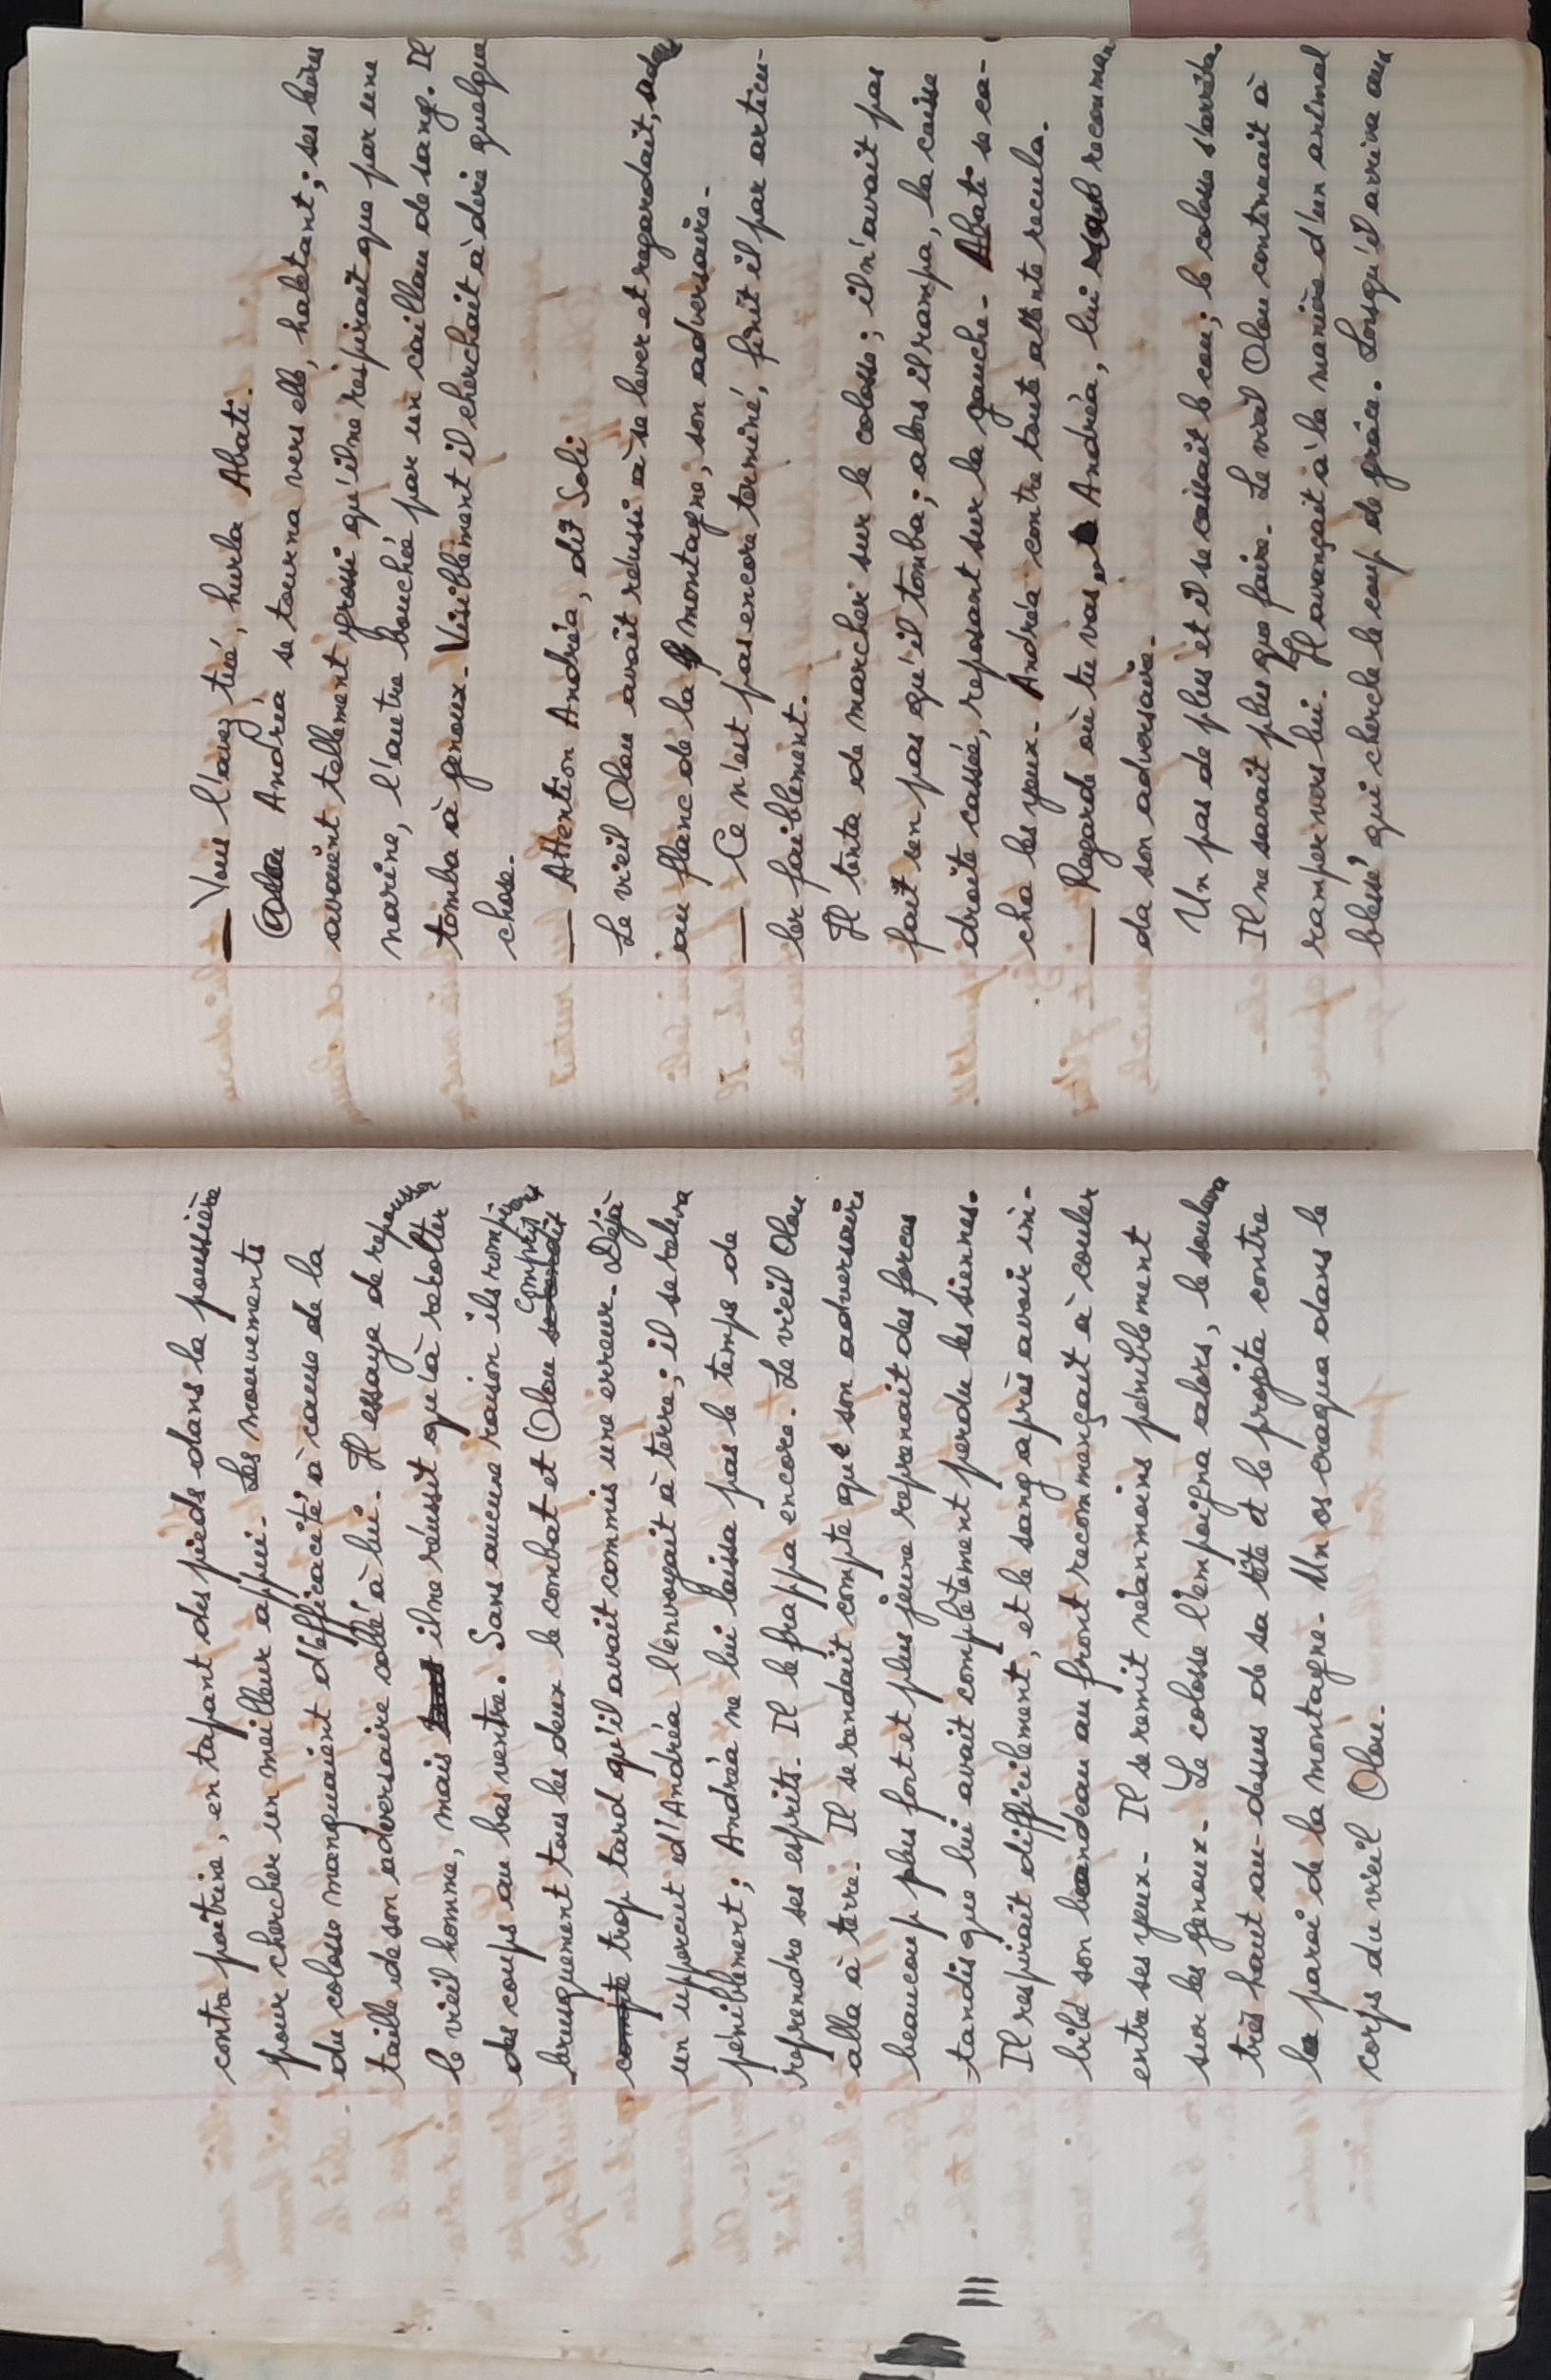 contre poitrine, en tapant des pieds dans la poussière
pour chercher un meilleur appui. Les mouvements
du colosse manquaient d'efficacité à cause de la
taille de son adversaire collé à lui. Il essaye de repousser
le vieil homme, mais il ne réussit qu'à récolter
des coups au bas ventre. Sans aucune raison ils rompirent
brusquement tous les deux le combat et Olou comprit
trop tard qu'il avait commis une erreur. Déjà
un uppercut d'Andréa l'envoyait à terre ; il se releva
péniblement ; Andréa ne lui laissa pas le temps de
reprendre ses esprits. Il le frappa encore. Le vieil Olou
alla à terre. Il se rendait compte que son adversaire
beaucoup plus fort et plus jeune reprenait des forces
tandis que lui avait complètement perdu les siennes.
Il respirait difficilement, et le sang après avoir im-
bibé son bandeau au front recommençait à couler
entre ses yeux. Il se remit néanmoins péniblement
sur les genoux. Le colosse l'empoigna alors, le souleva
très haut au-dessus de sa tête et le projeta contre
la paroi de la montagne. Un os craqua dans le
corps du vieil Olou.
— Vous l'avez tué, hurla Abati.
Andréa se tourna vers elle, haletant ; ses lèvres
avaient tellement grossi qu'il ne respirait que par une
narine, l'autre bouchée par un caillau de sang. Il
tomba à genoux. Visiblement il cherchait à dire quelque
chose.
— Attention Andréa, dit Soli
Le vieil Olou avait réussi à se lever et regardait, adossé
au flanc de la montagne, son adversaire.
— Ce n'est pas encore terminé, finit il par articu-
ler faiblement.
Il tenta de marcher sur le colosse ; il n'avait pas
fait un pas qu'il tomba ; alors il rampa, la cuisse
droite cassée, reposant sur la gauche. Abati se ca-
cha les yeux. Andréa contre toute attente recula.
— Regarde où tu vas, Andréa, lui recomman
da son adversaire.
Un pas de plus et il se cassait le cou ; le colosse s'arrêta.
Il ne savait plus que faire. Le vieil Olou continuait à
ramper vers lui. Il avançait à la manière d'un animal
blessé qui cherche le coup de grâce. Lorsqu'il arriva aux